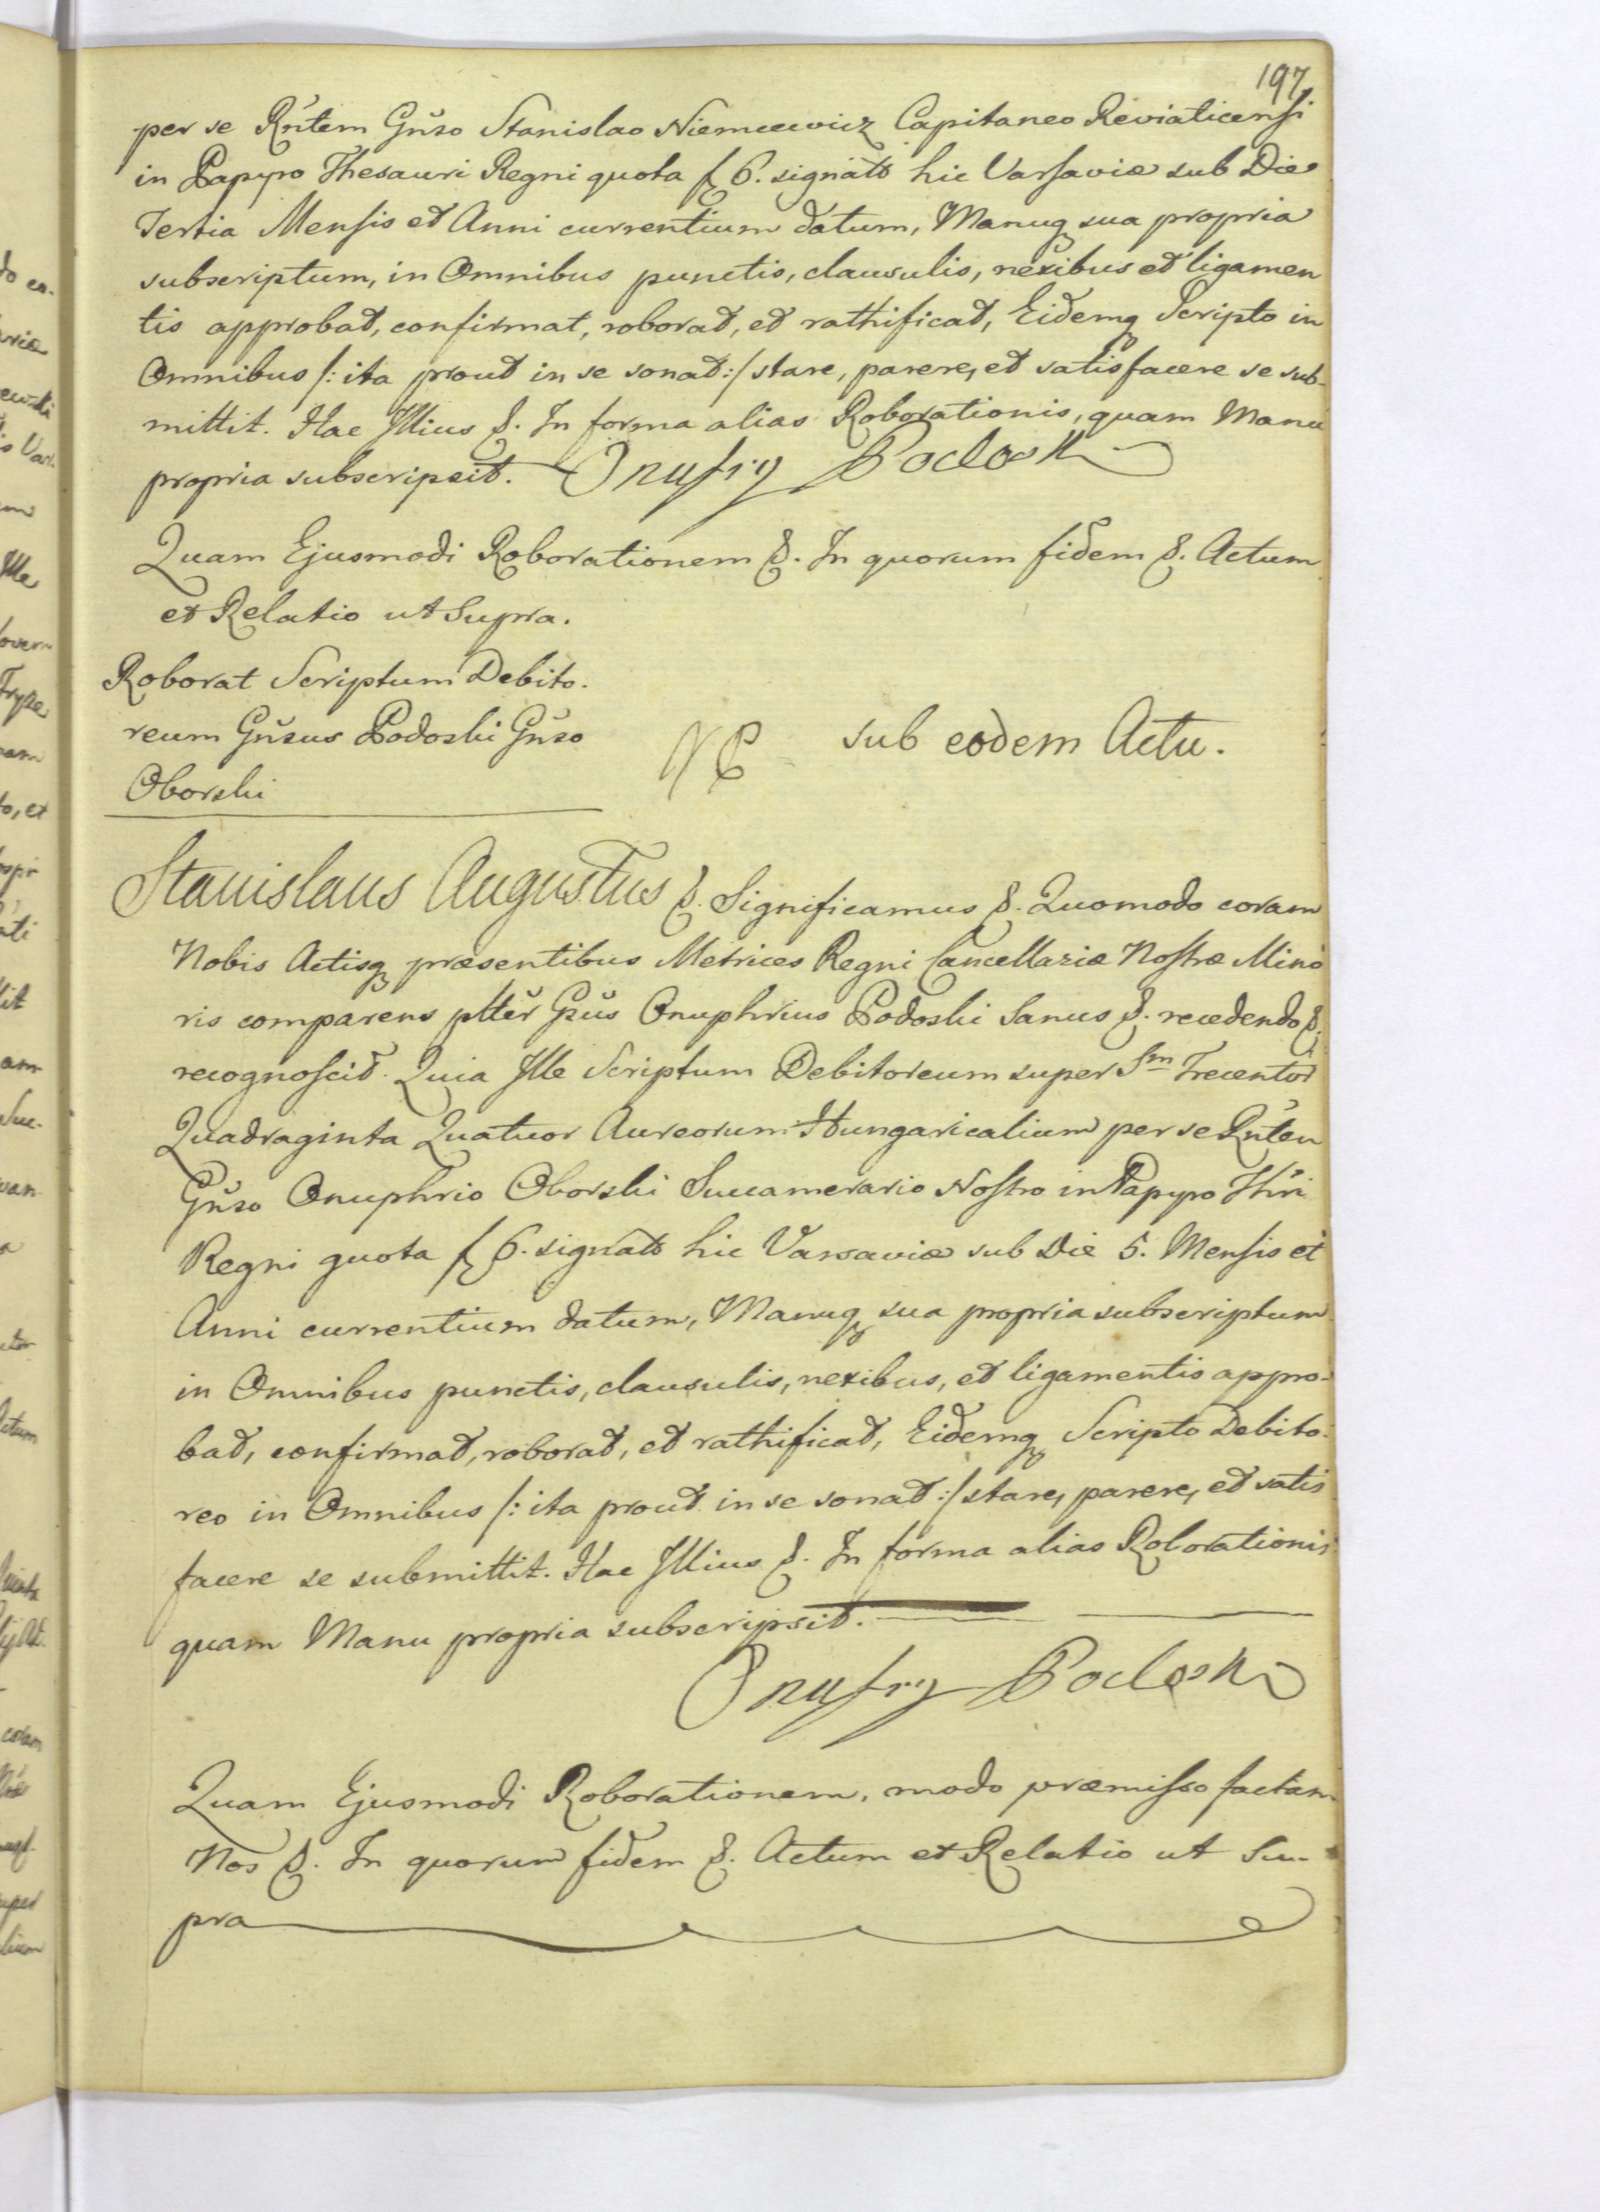 197
per se Rńtem Gńso Stanislao Niemcewicz Capitaneo Reviaticensi
in Papyro Thesauri Regni quota f 6. signato hic Varsaviæ sub Die
Tertia Mensis et Anni currentium datum, Manuq sua propria
subscriptum, in Omnibus punctis, clausulis, nexibus et ligamen
tis approbat, confirmat, roborat, et rathificat, Eidemq Scripto in
Omnibus /: ita prout in se sonat :/ stare, parere, et satisfacere se sub-
mittit. Hac Illius &. In forma alias Roborationis, quam Manu
propria subscripsit. Onufry Podoski
Quam Ejusmodi Roborationem &. In quorum fidem &. Actum
et Relatio ut Supra.
Roborat Scriptum Debito-
reum Gńsus Podoski Gńso
Oborski
sub eodem Actu.
Stanislaus Augustus &. Significamus &. Quomodo coram
Nobis Actisq præsentibus Metrices Regni Cancellariæ Nostræ Mino
ris comparens plter Gsus Onuphrius Podoski Sanus &. recedendo &.
recognoscit. Quia Ille Scriptum Debitoreum super Sm Trecentor
Quadraginta Quatuor Aureorum Hungaricalium per se Rńtem
Gńso Onuphrio Oborski Succamerario Nostro in Papyro Thri
Regni quota f 6. signato hic Varsaviæ sub Die 5. Mensis et
Anni currentium datum, Manuq sua propria subscriptum
in Omnibus punctis, clausulis, nexibus, et ligamentis appro-
bat, confirmat, roborat, et rathificat, Eidemq Scripto Debito-
reo in Omnibus /: ita prout in se sonat :/ stare, parere, et satis
facere se submittit. Hac Illius &. In forma alias Roborationis
quam Manu propria subscripsit.
Onufry Podoski
Quam Ejusmodi Roborationem, modo præmisso factam
Nos &. In quorum fidem &. Actum et Relatio ut Su-
pra